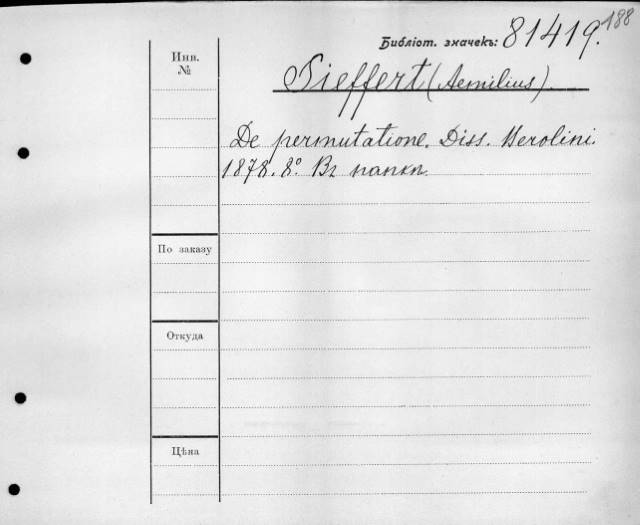 188
Библіот. значекъ: 81419.
Инв.
№
Pieffert (Aemilius).
De permutatione. Diss. Berolini.
1878. 8° Въ папкѣ.
По заказу
Откуда
Цѣна